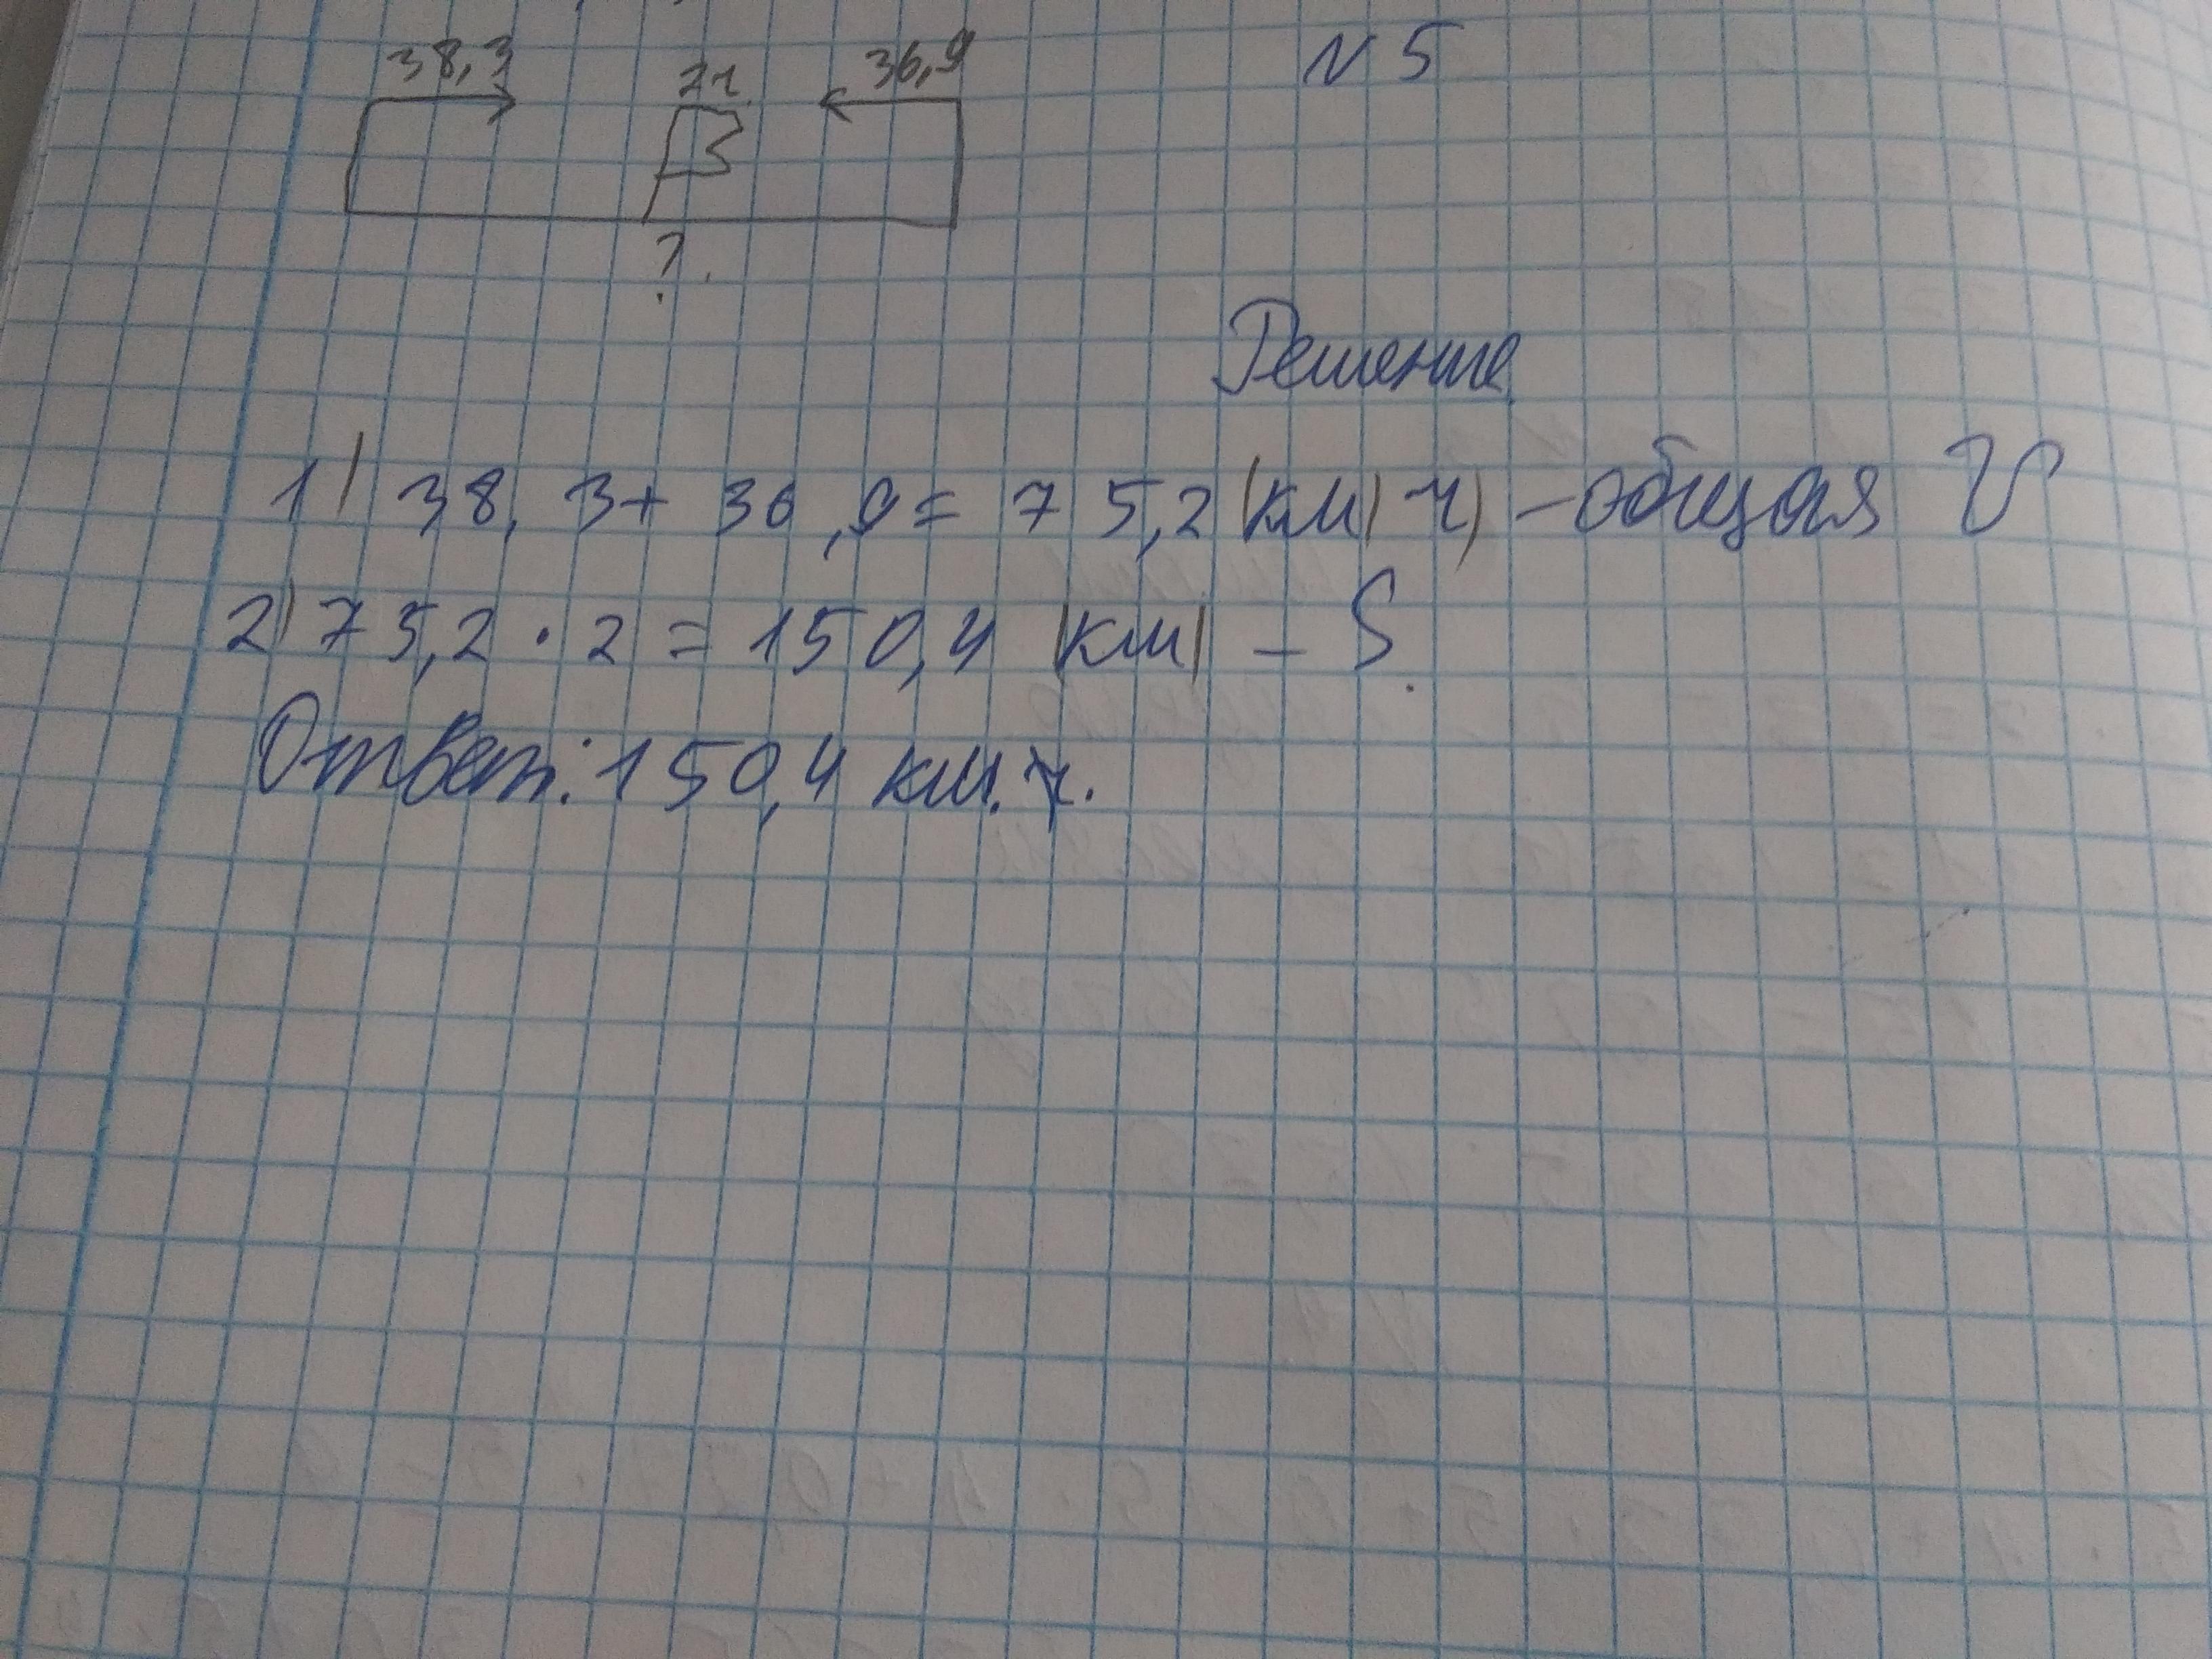 38,3 2ч. 36,9 N 5
?
Решение
1) 38,3+ 36,9= 75,2(км/ч) - общая V
2) 75,2 · 2 = 150,4 (км) - S.
Ответ: 150,4 км.ч.